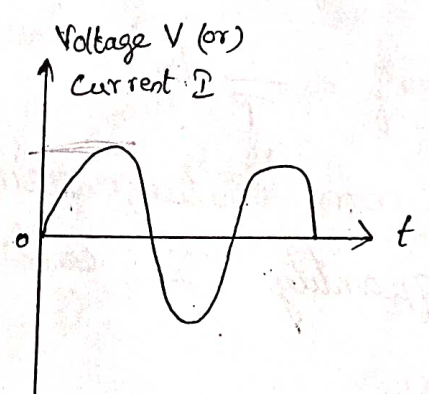 Voltage V (or)
Current I
0
t